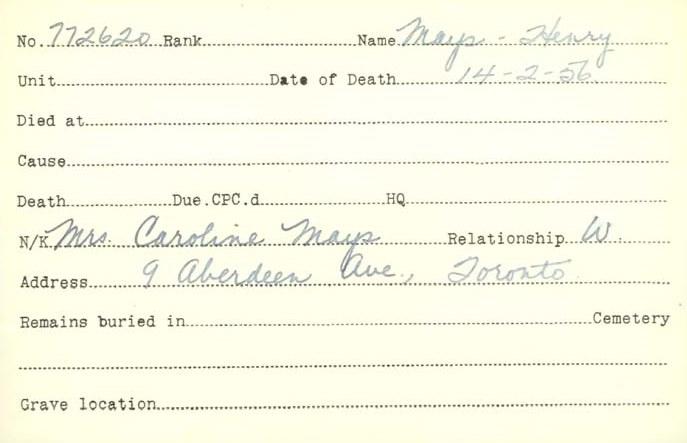 No. 772620 Rank Name Mays - Henry
Unit Date of Death 14-2-56
Died at
Cause
Death Due.CPC.d HQ
N/K Mrs. Caroline Mays Relationship W.
Address 9 Aberdeen Ave., Toronto
Remains buried in Cemetery
Grave location